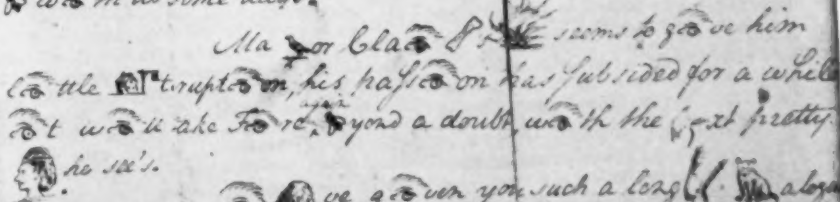 Ma or Cla 8 seems to g ve him
l ttle terrupt on, his paſs on has subsided for a while
t w ll take F re again yond a doubt, w th the xt pretty
he see's.
ve g ven you such a long